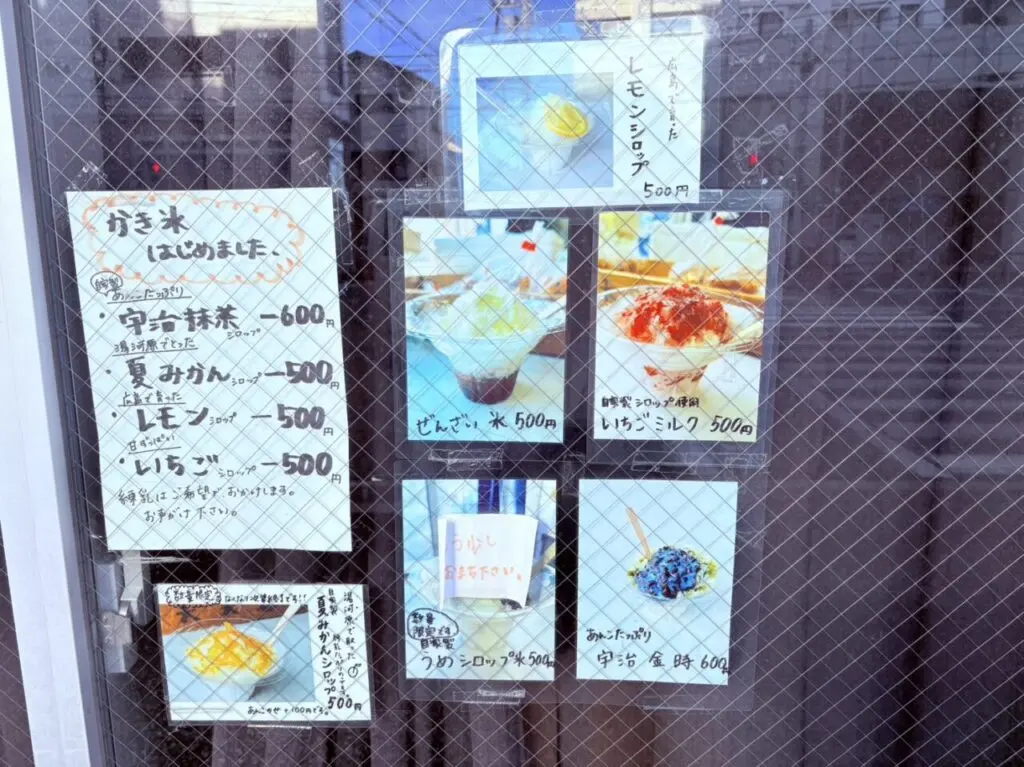 広島で育った
レモンシロップ
500円
かき氷
はじめました、
自家製
あんこたっぷり
・宇治抹茶シロップ ー600円
湯河原でとった
・夏みかんシロップ ー500円
広島で育った
・レモンシロップ ー500円
甘ずっぱい
・いちごシロップ ー500円
練乳はご希望でおかけします。
お声がけ下さい。
ぜんざい氷 500円
自家製シロップ使用
いちごミルク 500円
もう少し
お待ち下さい。
数量
限定です
自家製
うめシロップ氷 500円
あんこたっぷり
宇治金時 600円
数量限定 なくなり次第終了です!!
湯河原で取った
自家製
夏みかんシロップ
500円
あんこのせ+100円です。